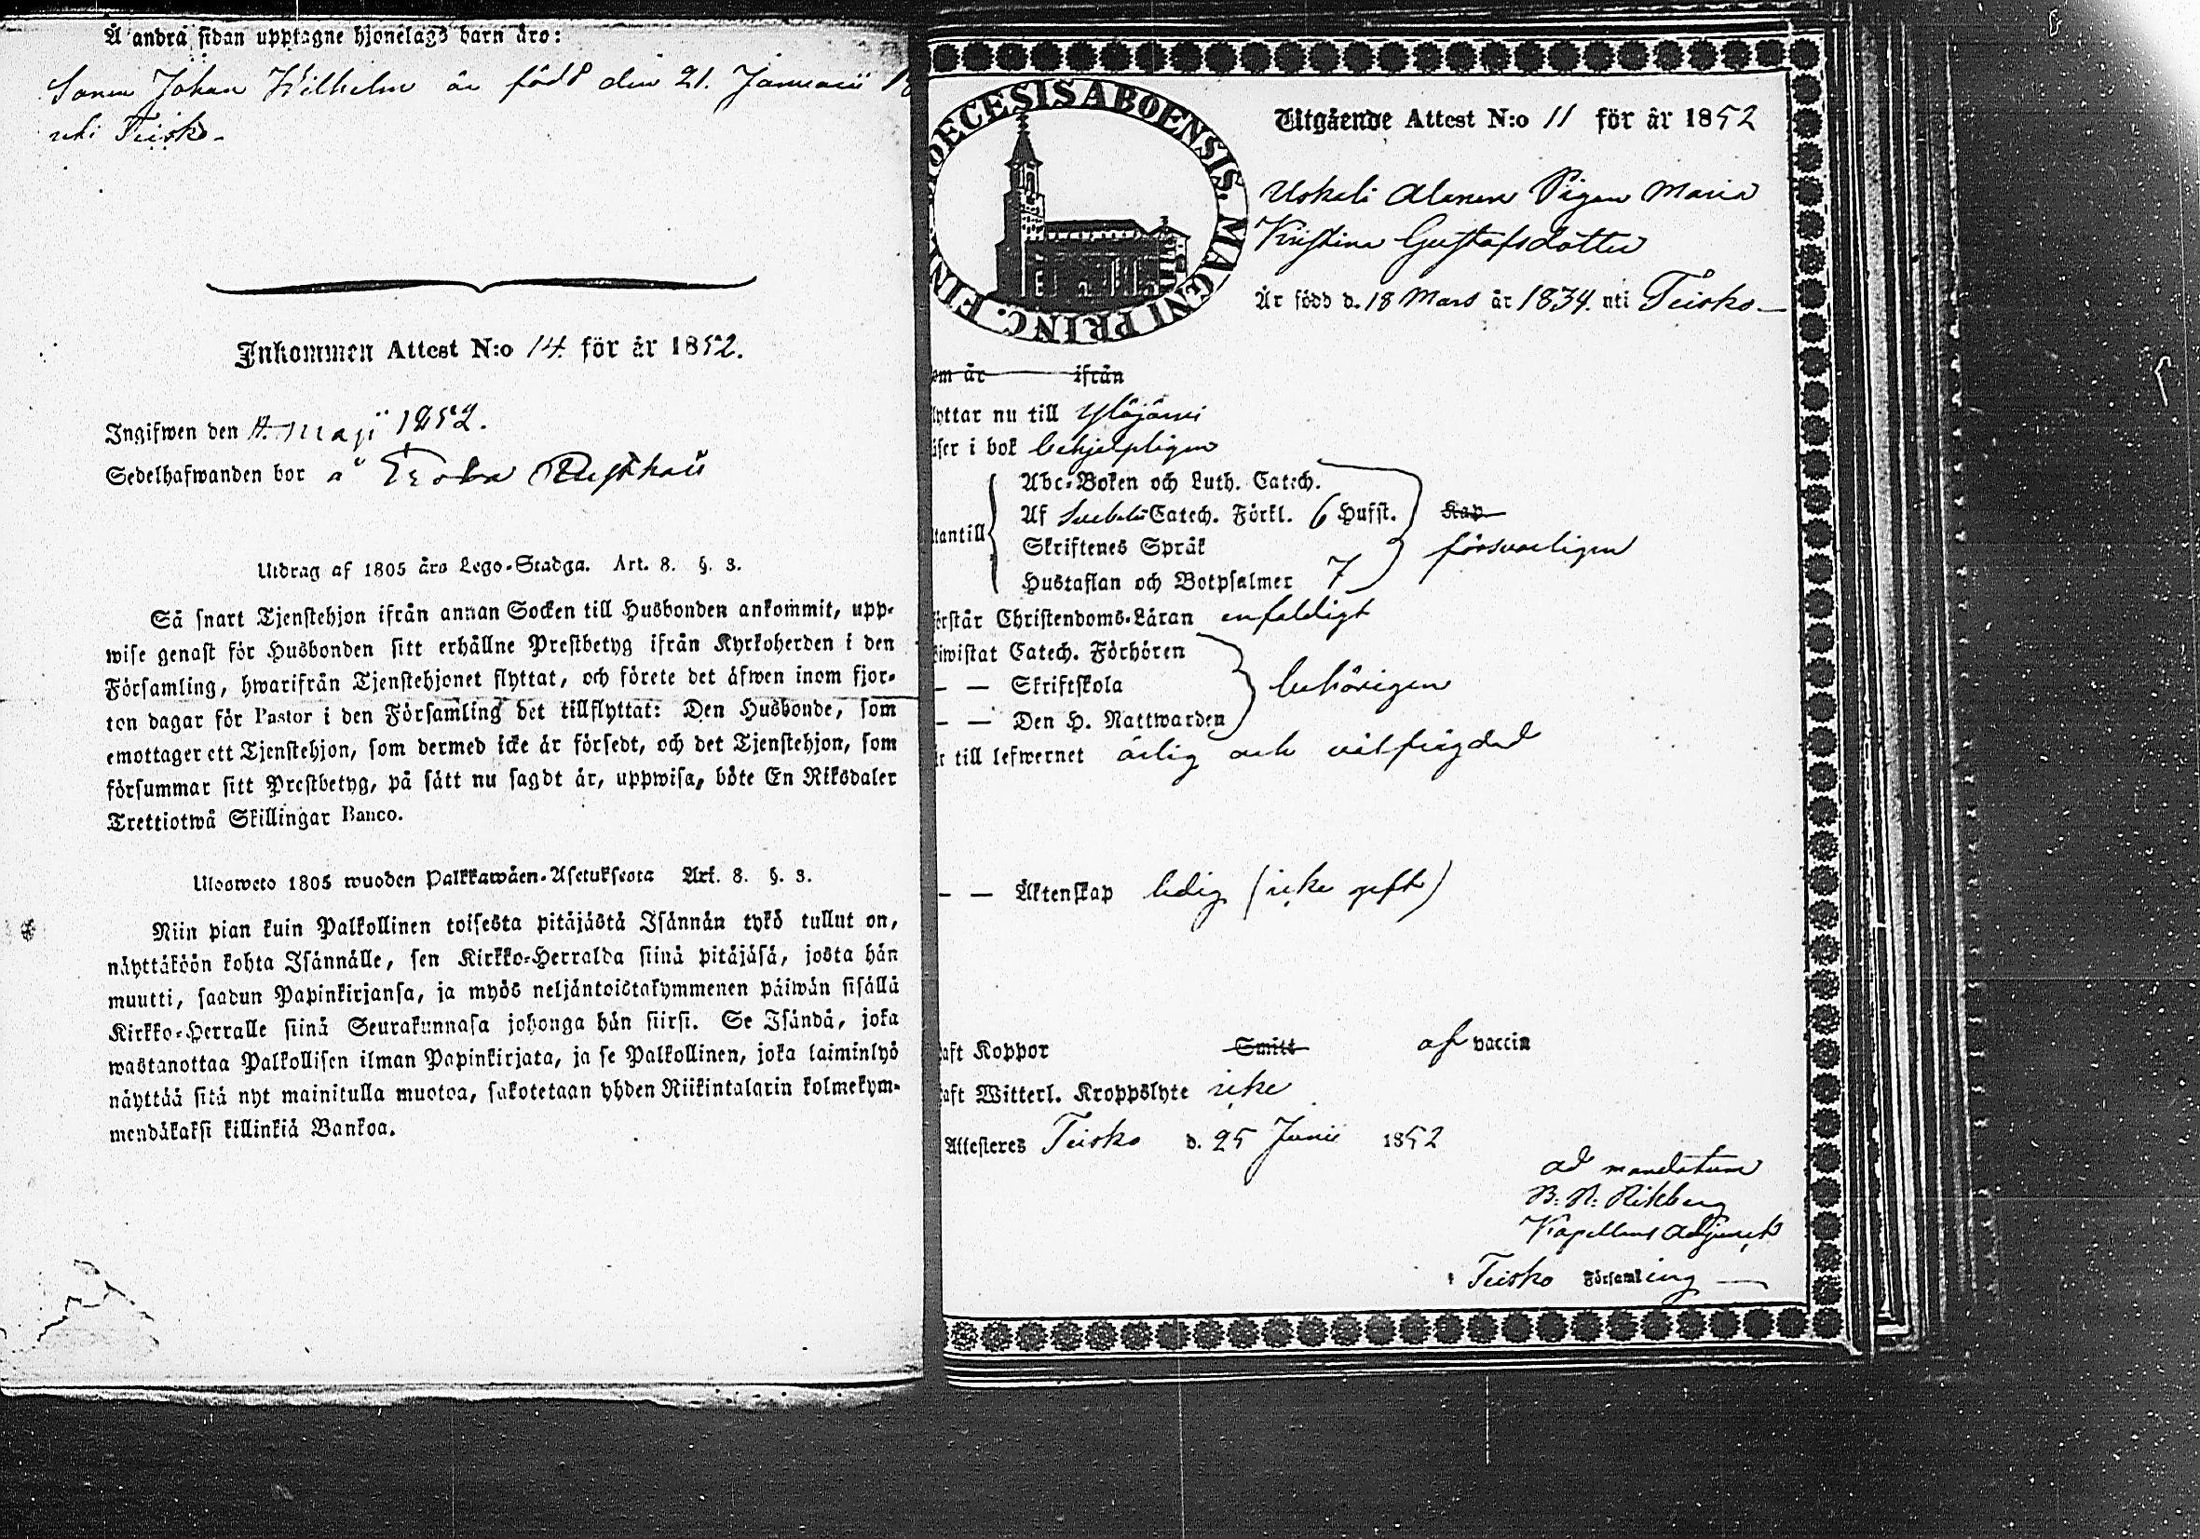 Å andra sidan upptagne hjonelags barn äro:
Sonen Johan Wilhelm är född den 21. Januarii
uti Teisko
Inkommen Attest N:o 14. för år 1852.
Ingifwen den Maji 1852.
Sedelhafwanden bor å
Utdrag af 1805 års Lego-Stadga. Art. 8. §. 3.
Så snart Tjenstehjon ifrån annan Socken till Husbonden ankommit, upp-
wise genast för Husbonden sitt erhållne Prestbetyg ifrån Kyrkoherden i den
Församling, hwarifrån Tjenstehjonet flyttat, och förete det äfwen inom fjor-
ton dagar för Pastor i den Församling det tillflyttat: Den Husbonde, som
emottager ett Tjenstehjon, som dermed icke är försedt, och det Tjenstehjon, som
försummar sitt Prestbetyg, på sätt nu sagdt är, uppwisa, böte En Riksdaler
Trettiotwå Skillingar Banco.
Ulosweto 1805 wuoden Palkkawäen-Asetuksesta Art. 8. §. 3.
Niin pian kuin Palkollinen toisesta pitäjästä Isännän tykö tullut on,
näyttäköön kohta Isännälle, sen Kirkko-Herralda siinä pitäjäsä, josta hän
muutti, saadun Papinkirjansa, ja myös neljäntoistakymmenen päiwän sisällä
Kirkko-Herralle siinä Seurakunnasa johonga hän siirsi. Se Isändä, joka
wastanottaa Palkollisen ilman Papinkirjata, ja se Palkollinen, joka laiminlyö
näyttää sitä nyt mainitulla muotoa, sakotetaan yhden Riikintalarin kolmekym-
mendäkaksi killinkiä Bankoa.
OECESIS ABOENSIS. MAGNI PRINC. FIN
Utgående Attest N:o 11 för år 1852
Uskali Alanen Pigan Maria
Kristina Gustafsdotter
Är född d. 18 Mars år 1834. uti Teisko
em är ifrån
lyttar nu till Ylöjärvi
äser i bok behjelpligen
Abc-Boken och Luth. Catech.
Af Svebelii Catech. Förkl. 6 Hufst. Kap
tantill Skriftenes Språk försvarligen
Hustaflan och Botpsalmer 7
örstår Christendoms-Läran enfaldigt
iwistat Catech. Förhören
— — Skriftskola behörigen
— — Den H. Nattwarden
är till lefwernet ärlig och välfrägdad
— — Äktenskap ledig (icke gift)
aft Koppor Smitt af vaccin
aft Witterl. Kroppslyte icke
Attesteres Teisko d. 25 Junii 1852
ad mandatum
B. N. Rikberg
Kapellans Adjunct
i Teisko Församling